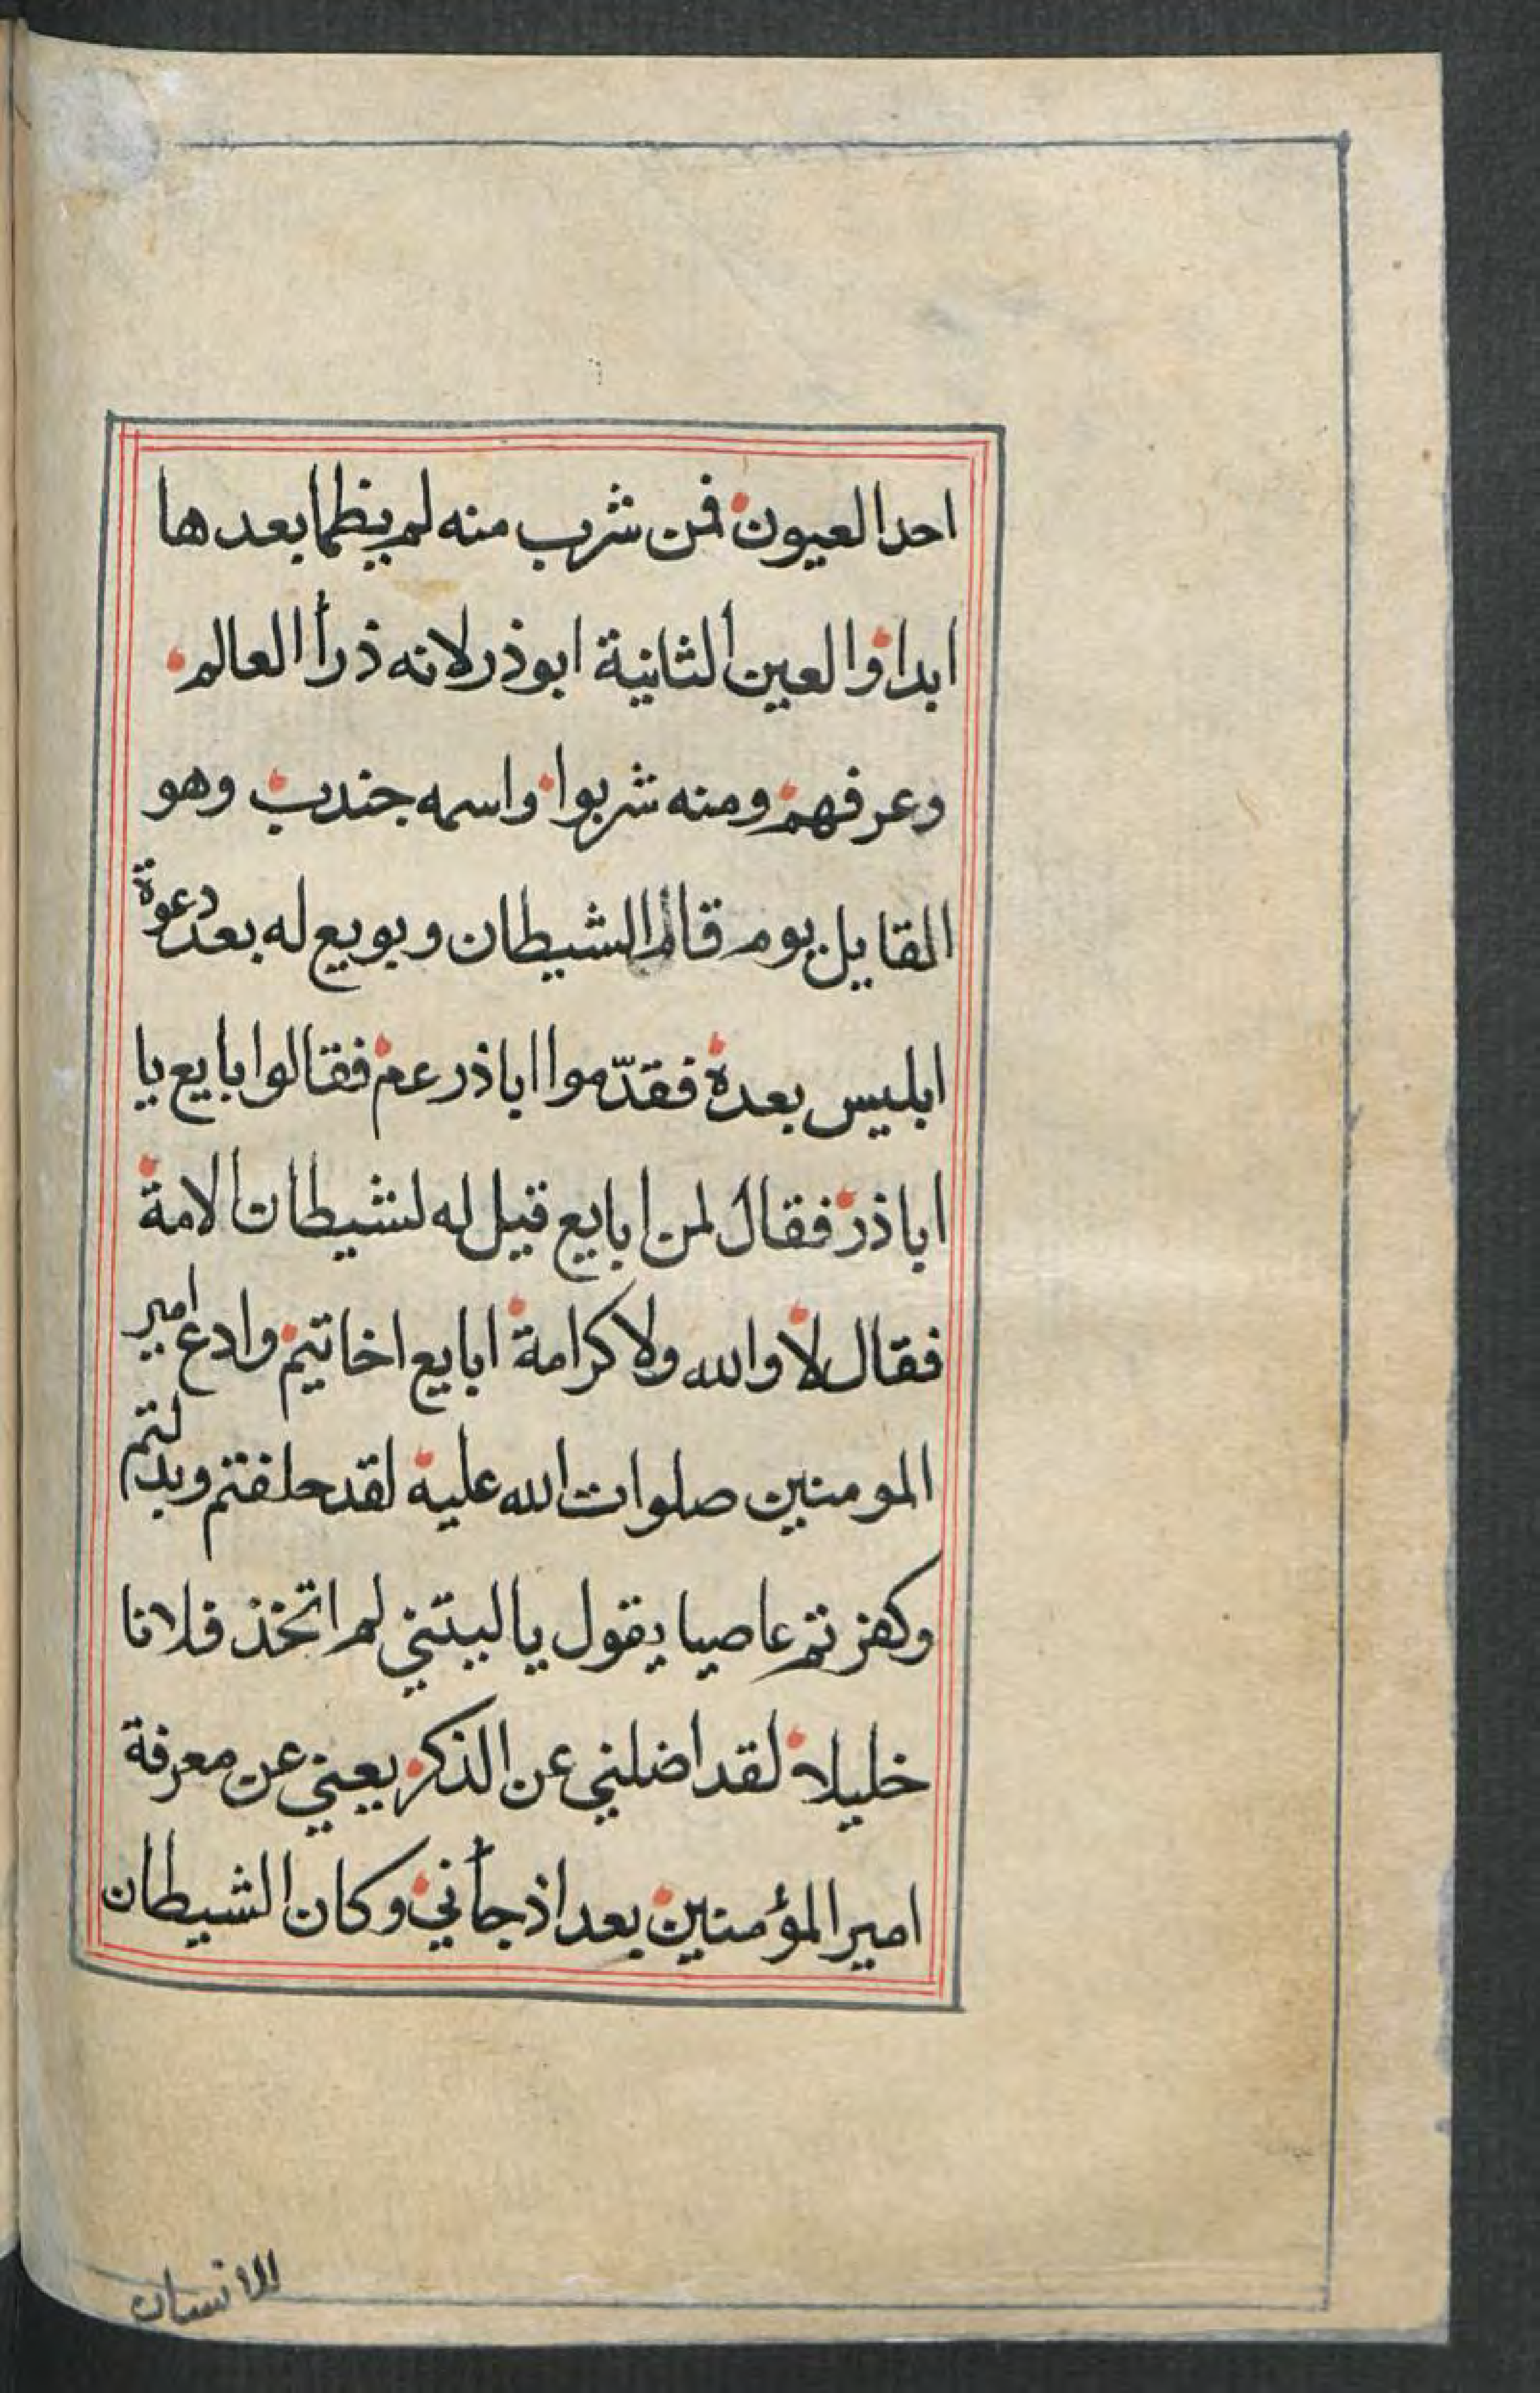 احدا لعيون فمن شرب منه لم يظما بعدها
ابدا والعين الثانية ابوذر لانه ذرأ العالم
وعرفهم ومنه شربوا واسمه جندب وهو
القايل يوم قام الشيطان وبويع له بعد دعوة
ابليس بعدة فقدّموا اباذر عم فقالوا بايع يا
اباذر فقال لمن ابايع قيل له لشيطان الامة
فقال لا والله ولا كرامة ابايع اخاتيم وادع امير
المومنين صلوات الله عليه لقد حلفتم وبدلتم
وكفرتم عاصيا يقول يا ليتني لم اتخذ فلانا
خليلا لقد اضلني عن الذكر يعني عن معرفة
امير المؤمنين بعد اذ جأني وكان الشيطان
للانسان